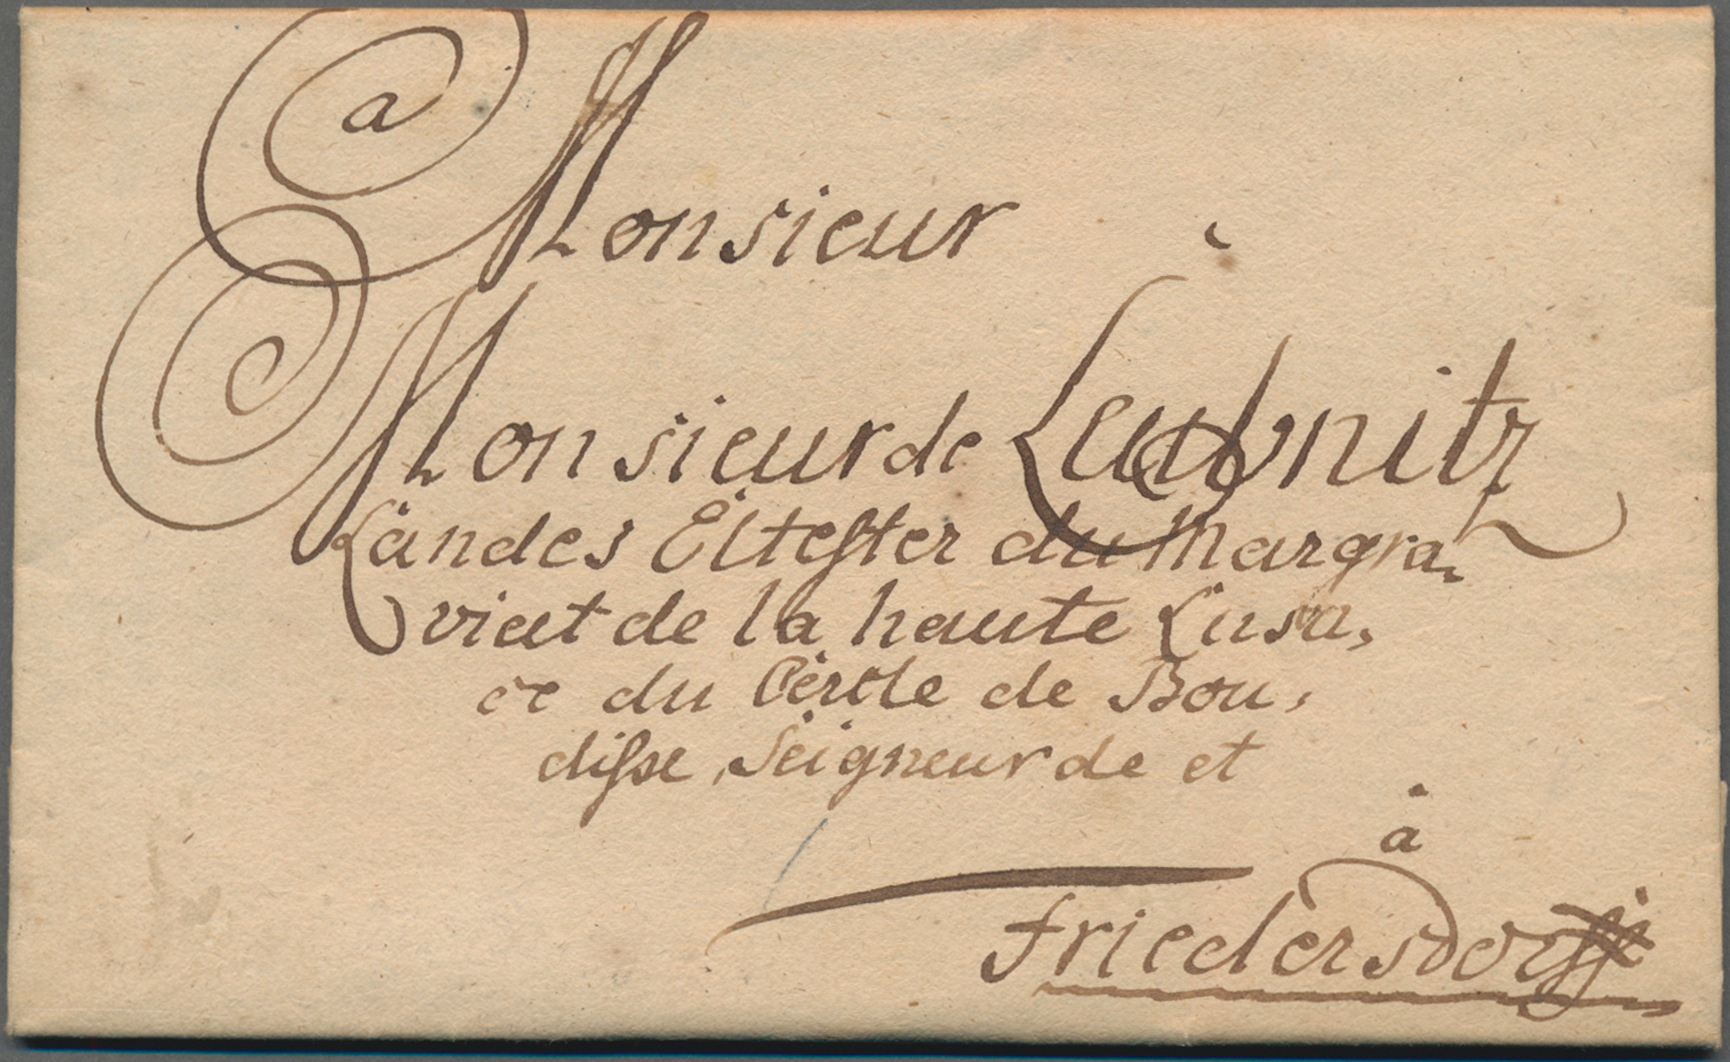 a
Monsieur
Monsieur de Leubnitz
Landes Eltester du Margra,
viat de la haute Lusa,
ce du Cercle de Bou,
disse, Seigneur de et
à
Friedersdorff